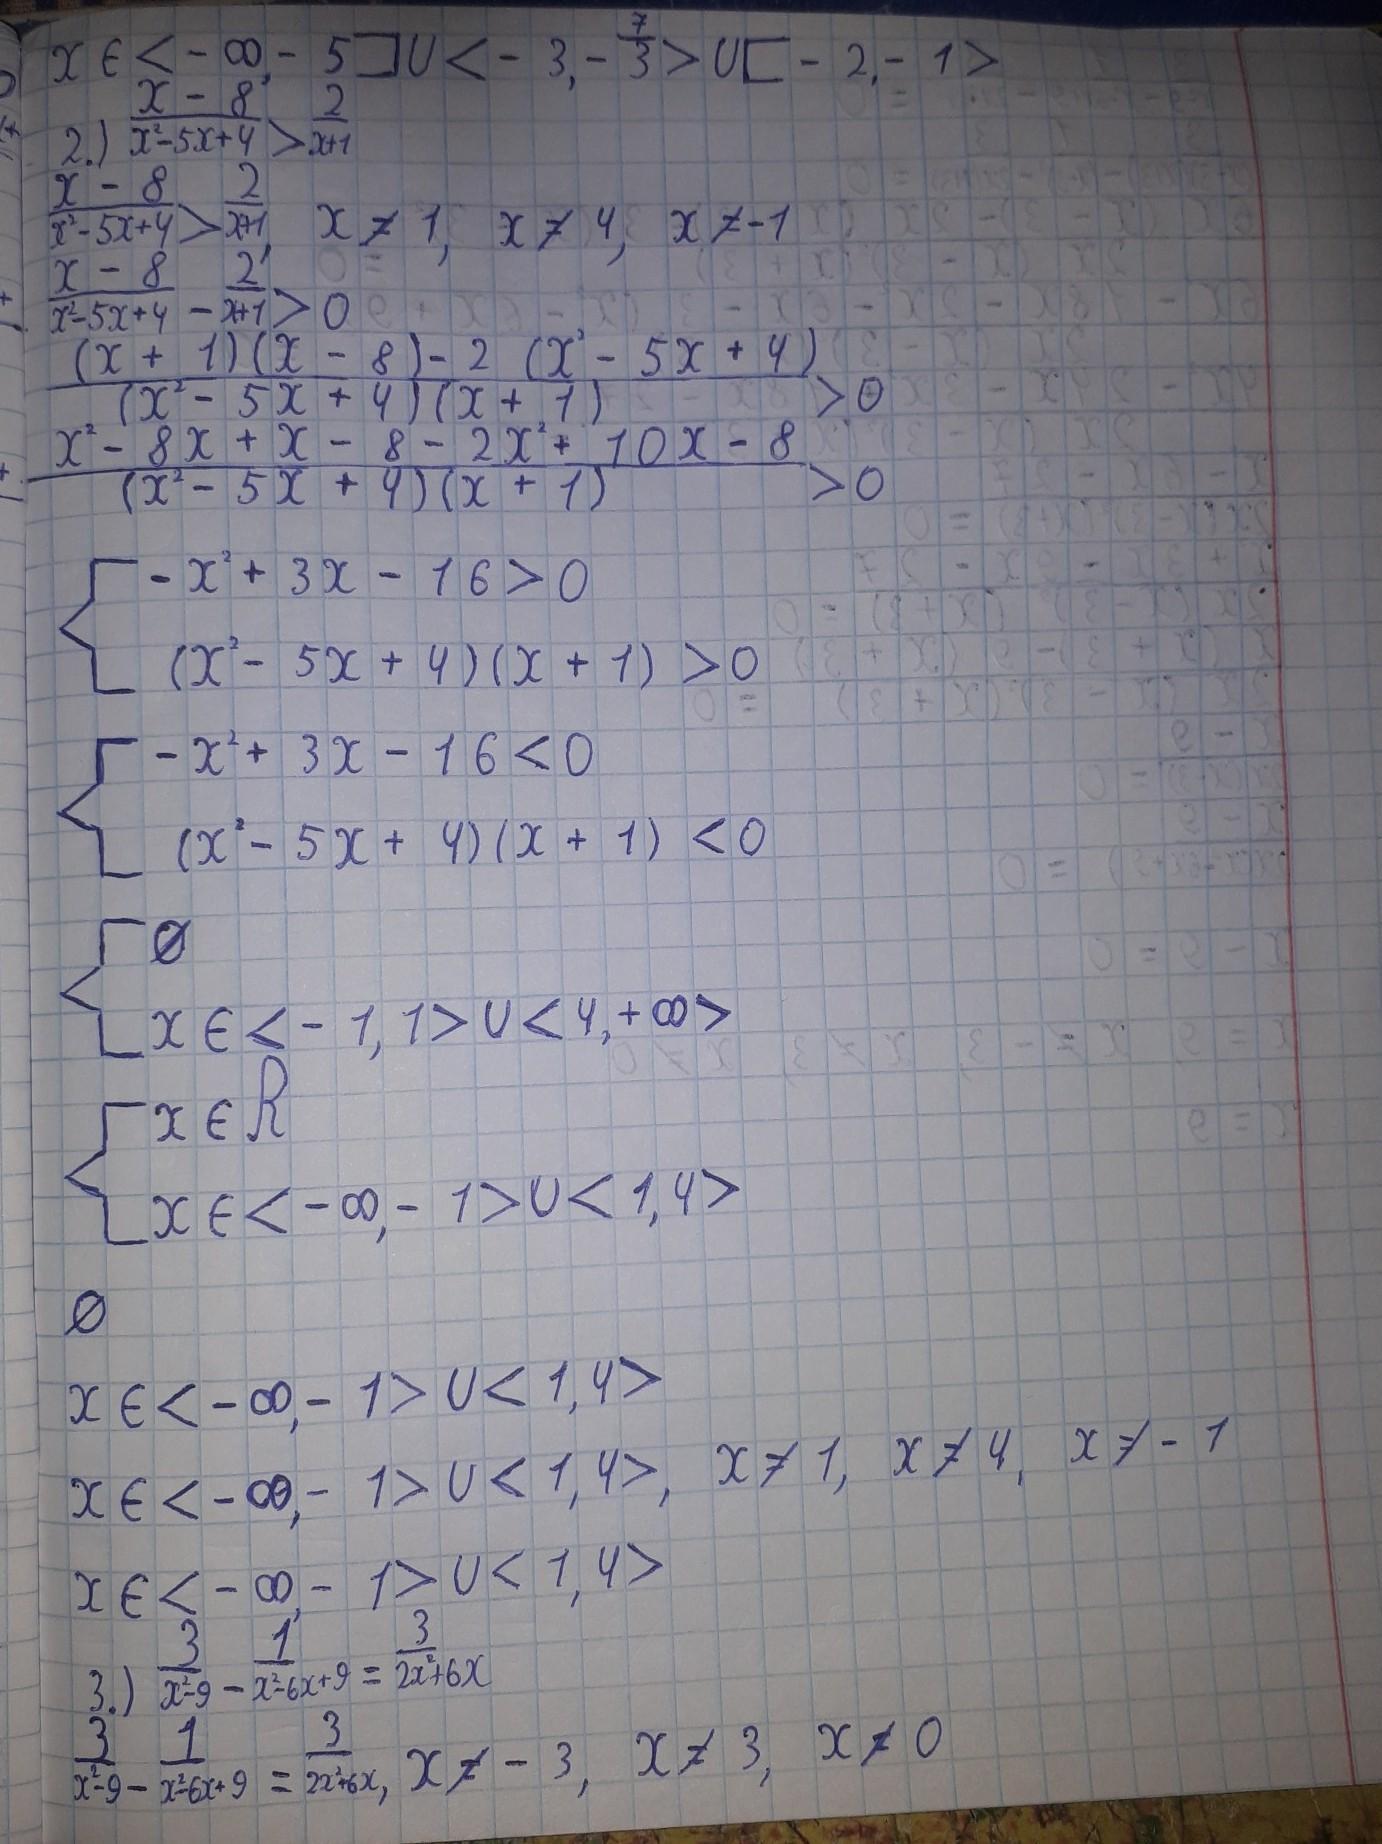 x ∈ < - ∞, - 5 ] ∪ < - 3, - 7/3 > ∪ [ - 2, - 1 >
2.) (x - 8)/(x² - 5x + 4) > 2/(x+1)
(x - 8)/(x² - 5x + 4) > 2/(x+1), x ≠ 1, x ≠ 4, x ≠ -1
(x - 8)/(x² - 5x + 4) - 2/(x+1) > 0
((x + 1)(x - 8) - 2 (x² - 5x + 4))/((x² - 5x + 4)(x + 1)) > 0
(x² - 8x + x - 8 - 2x² + 10x - 8)/((x² - 5x + 4)(x + 1)) > 0
{ - x² + 3x - 16 > 0
(x² - 5x + 4)(x + 1) > 0
{ - x² + 3x - 16 < 0
(x² - 5x + 4)(x + 1) < 0
{ ∅
x ∈ < - 1, 1 > ∪ < 4, + ∞ >
{ x ∈ R
x ∈ < - ∞, - 1 > ∪ < 1, 4 >
∅
x ∈ < - ∞, - 1 > ∪ < 1, 4 >
x ∈ < - ∞, - 1 > ∪ < 1, 4 >, x ≠ 1, x ≠ 4, x ≠ - 1
x ∈ < - ∞, - 1 > ∪ < 1, 4 >
3.) 3/(x² - 9) - 1/(x² - 6x + 9) = 3/(2x² + 6x)
3/(x² - 9) - 1/(x² - 6x + 9) = 3/(2x² + 6x), x ≠ - 3, x ≠ 3, x ≠ 0